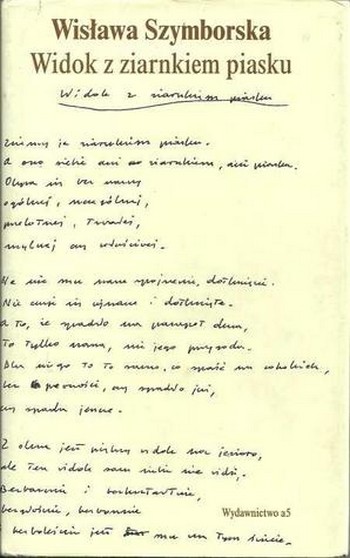 Wisława Szymborska
Widok z ziarnkiem piasku
Widok z ziarnkiem piasku
Zwiemy je ziarenkiem piasku.
A ono siebie ani ziarenkiem, ani piasku.
Obywa się bez nazwy
ogólnej, szczególnej,
przelotnej, trwałej,
mylnej czy właściwej.
Na nic mu nasze spojrzenie, dotknięcie.
Nie czuje się ujrzane i dotknięte.
A to, że spadło na parapet okna,
to tylko nasza, nie jego przygoda.
Dla niego to to samo, co spaść na cokolwiek,
bez pewności, czy spadło już,
czy spada jeszcze.
Z okna jest piękny widok na jezioro,
ale ten widok sam siebie nie widzi.
Bezbarwnie i bezkształtnie,
bezgłośnie, bezwonnie
i bezboleśnie jest mu na tym świecie.
Wydawnictwo a5